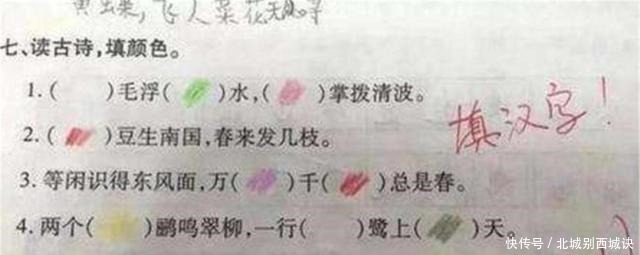 黄出菜，飞入菜花无处寻
七、读古诗，填颜色。
1.(   )毛浮(   )水，(   )掌拨清波。
填汉字！
2.(   )豆生南国，春来发几枝。
3.等闲识得东风面，万(   )千(   )总是春。
4.两个(   )鹂鸣翠柳，一行(   )鹭上(   )天。
快传号/北城别西城诀